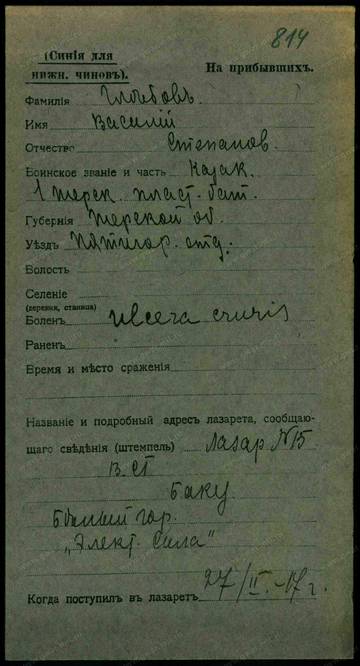 814
(Синія для
нижн. чиновъ).
На прибывшихъ.
Фамилія Глѣбовъ.
Имя Василій
Отчество Степанов.
Воинское званіе и часть Казак.
1 терск. пласт. бат.
Губернія Терской об.
Уѣздъ Пятигор. отд.
Волость
Селеніе
(деревня, станица)
Боленъ ulcera cruris
Раненъ
Время и мѣсто сраженія
Названіе и подробный адресъ лазарета, сообщаю-
щаго свѣдѣнія (штемпель) Лазар. №15
В. С.
Баку
гор.
„Элект. Сила"
Когда поступилъ въ лазаретъ 27/II-17 г.